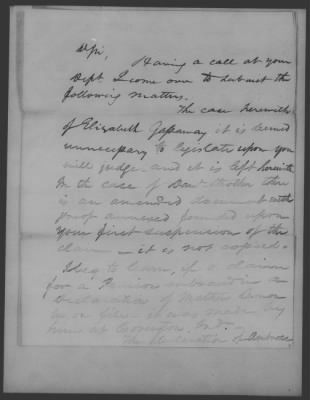 Having a call at your
Dept. I come over to submit the
following matters.
The case herewith
of Elizabeth Gassaway it is deemed
unnecessary to legislate upon you
will judge - and it is left herewith
In the case of there
is an amended document with
proof annexed founded upon
your first suspension of the
claim - it is not copied.
I beg to learn, if a claim
for a Pension a
declaration of
on file - it was made by
him at Covington, Ind.
The declaration of Ambrose